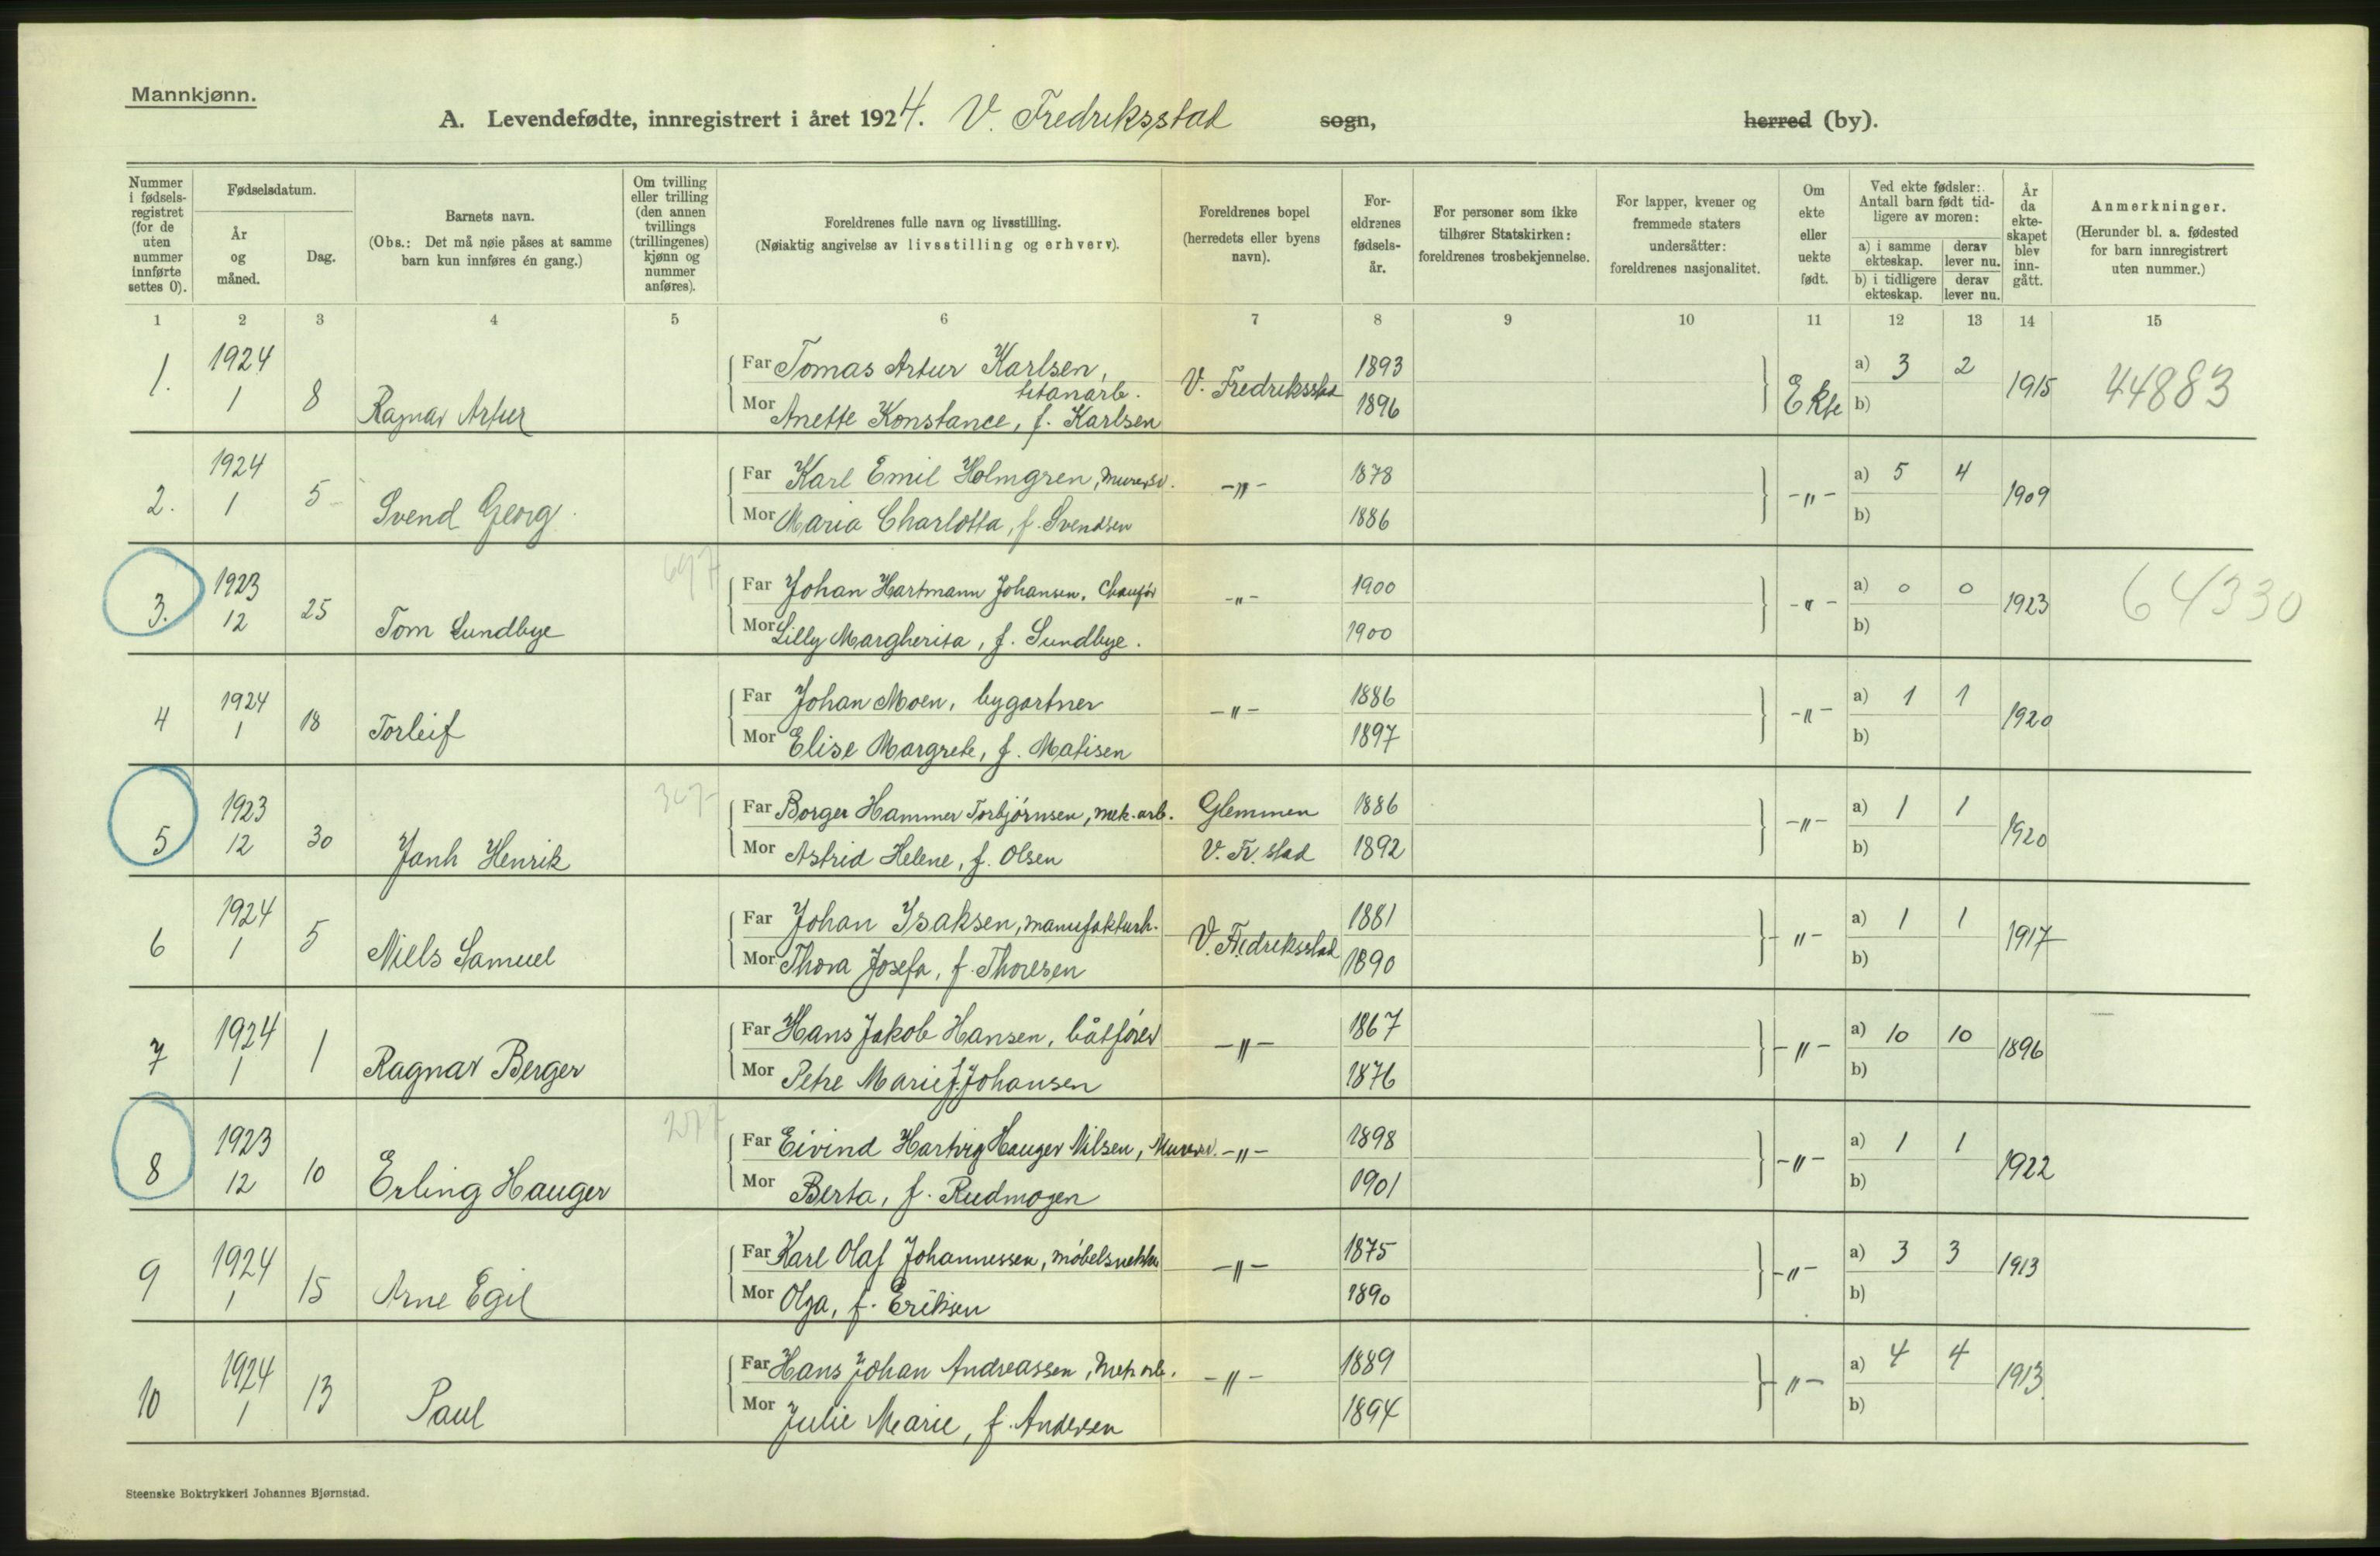 Mannkjønn.
A. Levendefødte, innregistrert i året 1924. V. Fredriksstad sogn, herred (by).
Nummer i fødselsregistret (for de uten nummer innførte settes 0).
Fødselsdatum.
År og måned.
Dag.
Barnets navn.
(Obs.: Det må nøie påses at samme barn kun innføres én gang.)
Om tvilling eller trilling (den annen tvillings (trillingenes) kjønn og nummer anføres).
Foreldrenes fulle navn og livsstilling.
(Nøiaktig angivelse av livsstilling og erhverv).
Foreldrenes bopel (herredets eller byens navn).
Foreldrenes fødselsår.
For personer som ikke tilhører Statskirken: foreldrenes trosbekjennelse.
For lapper, kvener og fremmede staters undersåtter: foreldrenes nasjonalitet.
Om ekte eller uekte født.
Ved ekte fødsler: Antall barn født tidligere av moren:
a) i samme ekteskap. derav lever nu.
b) i tidligere ekteskap. derav lever nu.
År da ekteskapet blev inngått.
Anmerkninger.
(Herunder bl. a. fødested for barn innregistrert uten nummer.)
1 2 3 4 5 6 7 8 9 10 11 12 13 14 15
1. 1924 1 8 Ragnar Artur
Far Tomas Artur Karlsen, titanarb. V. Fredriksstad 1893 Ekte a) 3 2 1915 44883
Mor Anette Konstance, f. Karlsen 1896 b)
2. 1924 1 5 Svend Georg
Far Karl Emil Holmgren, murersv. -"- 1878 -"- a) 5 4 1909
Mor Maria Charlotta, f. Svendsen 1886 b)
3. 1923 12 25 Tom Sundbye 697
Far Johan Hartmann Johansen, Chauffør -"- 1900 -"- a) 0 0 1923 64330
Mor Lilly Margherita, f. Sundbye. 1900 b)
4 1924 1 18 Torleif
Far Johan Moen, bygartner -"- 1886 -"- a) 1 1 1920
Mor Elise Margrete, f. Matisen 1897 b)
5 1923 12 30 Janh Henrik
Far Borger Hammer Torbjørnsen, mek. arb. Glemmen 1886 -"- a) 1 1 1920
Mor Astrid Helene, f. Olsen V. Fr. stad 1892 b)
6 1924 1 5 Niels Samuel
Far Johan Isaksen, manufakturh. V. Fredriksstad 1881 -"- a) 1 1 1917
Mor Thora Josefa, f. Thoresen 1890 b)
7 1924 1 1 Ragnar Berger
Far Hans Jakob Hansen, båtfører -"- 1867 -"- a) 10 10 1896
Mor Petre Marie f. Johansen 1876 b)
8 1923 12 10 Erling Hauger
Far Eivind Hartvig Hauger Nilsen, Murersv. -"- 1898 -"- a) 1 1 1922
Mor Berta, f. Rudmogen 1901 b)
9 1924 1 15 Arne Egil
Far Karl Olaf Johannessen, møbelsnekker -"- 1875 -"- a) 3 3 1913
Mor Olga, f. Eriksen 1890 b)
10 1924 1 13 Paul
Far Hans Johan Andreassen, Mek arb. -"- 1889 -"- a) 4 4 1913
Mor Julie Marie, f. Andersen 1894 b)
Steenske Boktrykkeri Johannes Bjørnstad.